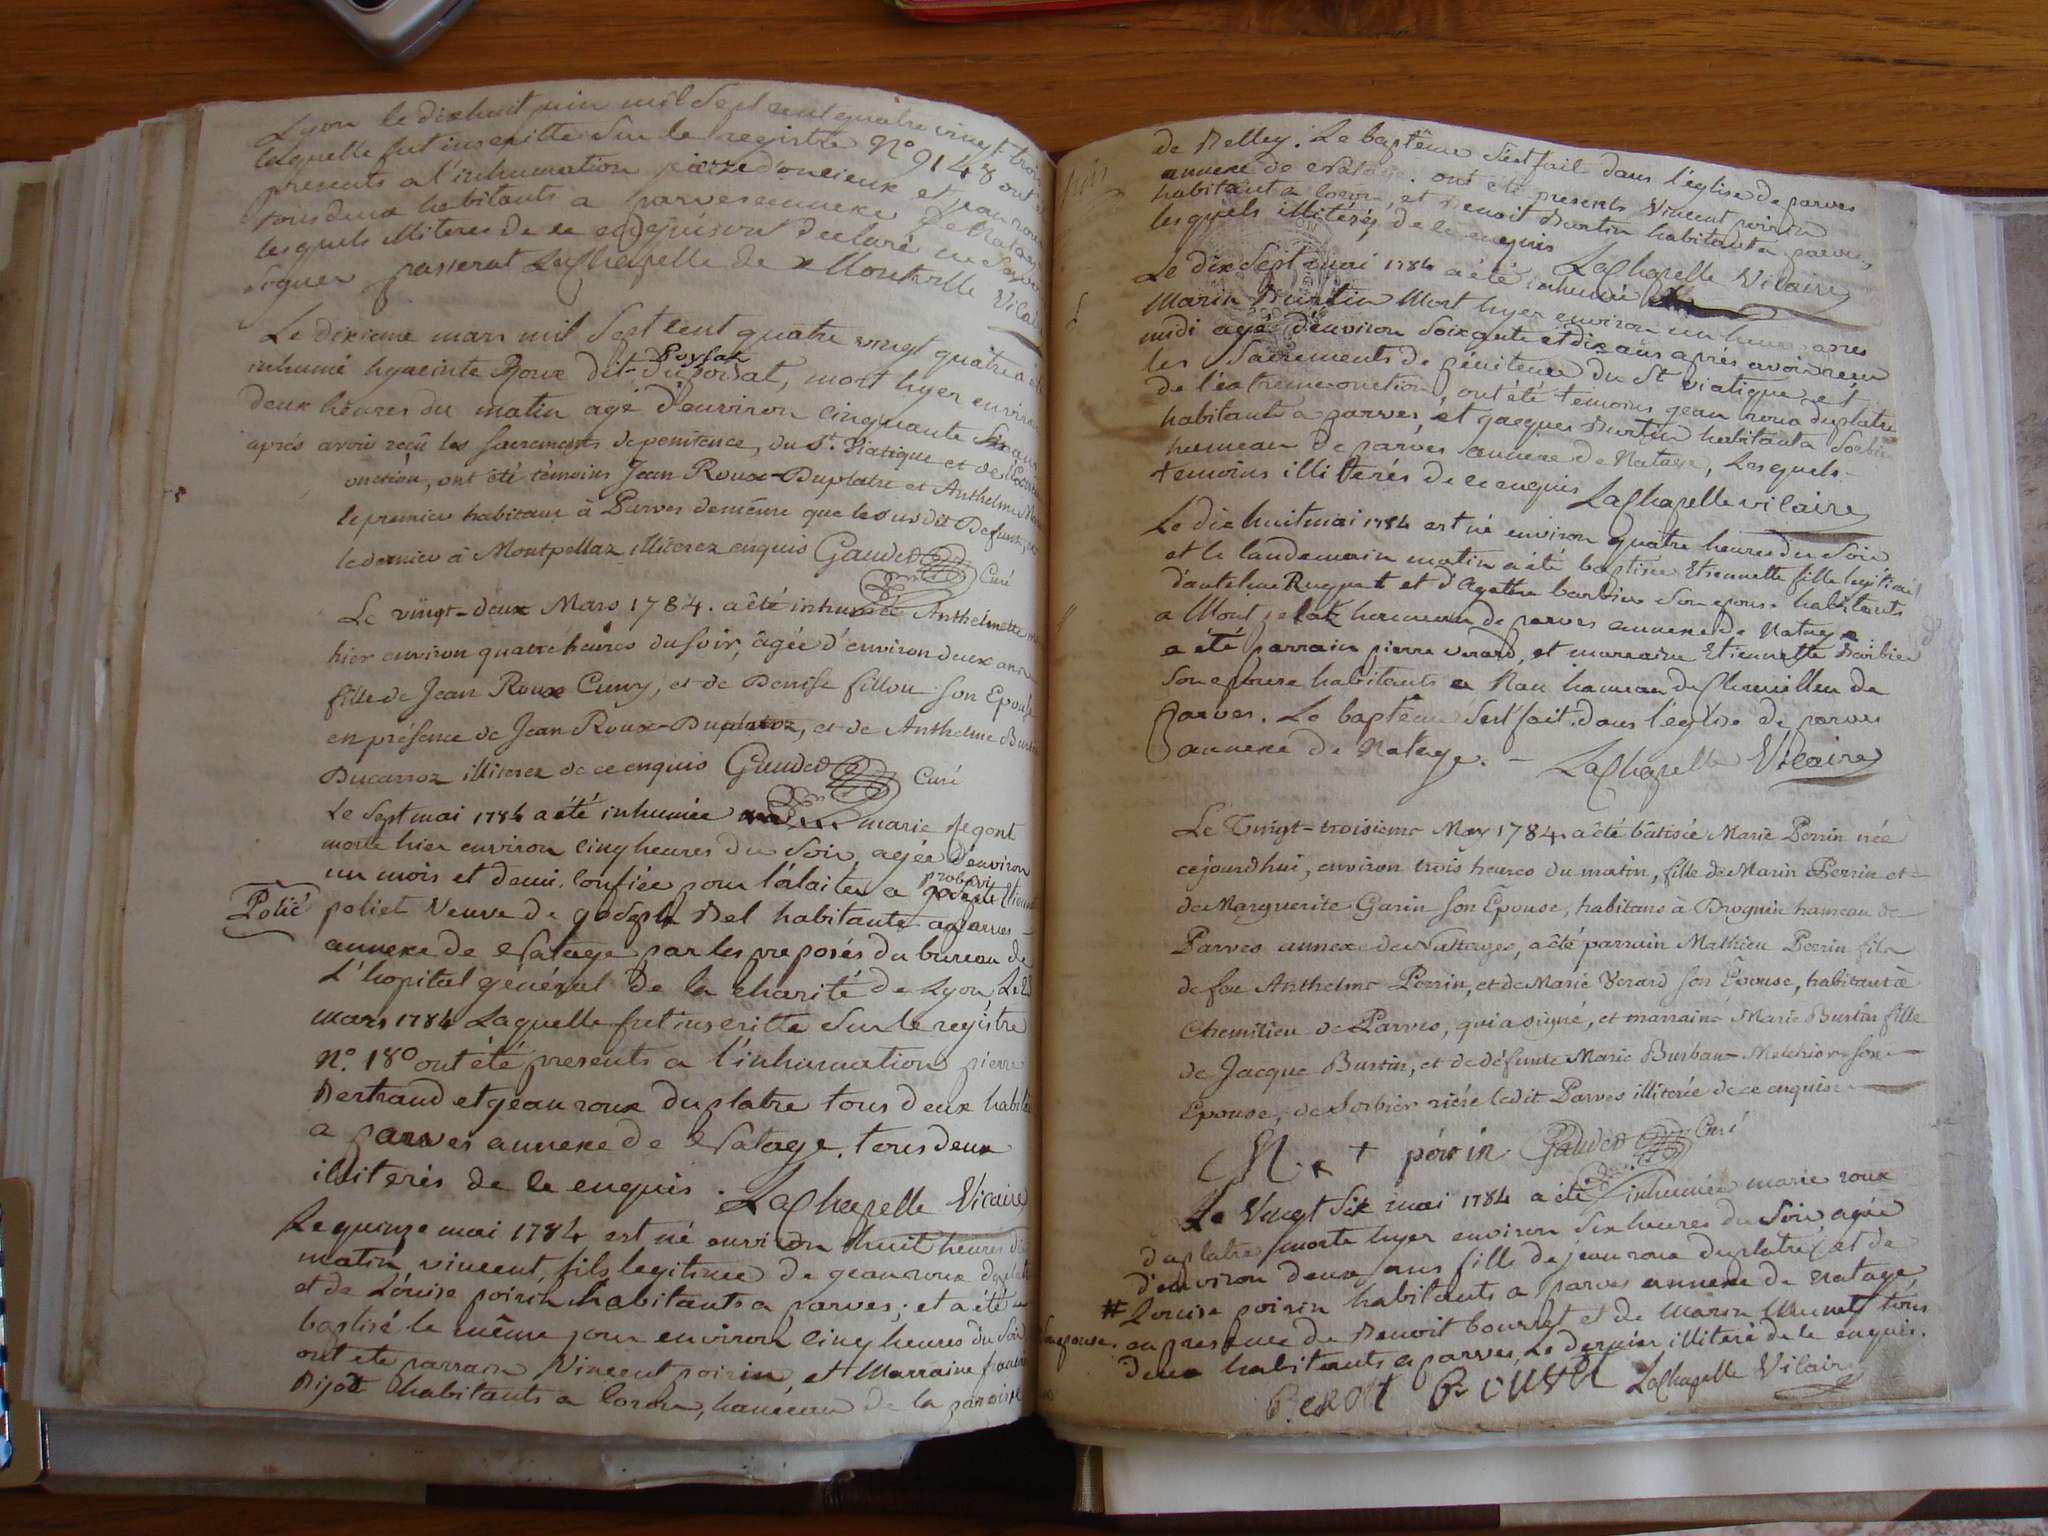 Lyon le dixhuit juin mil Sept cent quatre vingt trois
laquelle fut inscritte Sur le registre N° 9148 ont été
presents a l'inhumation pierre doncieux et jean roux
tous deux habitants a parves annexe de Natage
lesquels illiteres de ce enquis ont declaré ne Savoir
Signer passerat LaChapelle de Vicaire
Le dixieme mars mil Sept cent quatre vingt quatre a été
inhumé hyacinte Roux dit Dupoisat, mort hyer environ
deux heures du matin agé d'environ cinquante Six ans
aprés avoir reçû les Sacrements de penitence, du St. Viatique et de l'Extreme
onction, ont été témoins Jean Roux-Duplatre et Anthelme
le premier habitant à Parves de même que le susdit Defunt,
le dernier à Montpellaz illiterez enquis Gaudet Curé
Le vingt-deux Mars 1784. a êté inhumée Anthelmette
hier environ quatre heures du soir, âgée d'environ deux ans
fille de Jean Roux Cuny, et de Denise fillon son Epouse
en présence de Jean Roux-Duplatre, et de Anthelme Burtin
Ducarroz illiterez de ce enquis Gaudet Curé
Le Sept mai 1784 a été inhumée marie
morte hier environ cinq heures du Soir, agée d'environ
un mois et demi, confiée pour l'alaiter a
Polié poliet Veuve de joseph Bel habitante a parves
annexe de Natage par les preposés du bureau de
L'hopital général de la charité de Lyon, Le
mars 1784 Laquelle fut inscritte Sur le registre
N°. 180 ont été presents a l'inhumation pierre
Bertrand et jean roux duplatre tous deux habitants
a parves annexe de Natage, tous deux
illiterés de ce enquis. LaChapelle Vicaire
Le quinze mai 1784 est né environ huit heures du
matin, vincent, fils legitime de jean roux duplatre
et de Louise poirin habitants a parves; et a été
baptisé le même jour environ cinq heures du Soir
ont ete parrain Vincent poirin, et Marraine
Bijot habitants a loron, hameau de la paroisse
de Belley. Le baptême S'est fait dans l'église de parves
annexe de Natage. ont été presents Vincent poirin
habitant a loron, et Benoit Burtin habitant a parves,
lesquels illitérés de ce enquis LaChapelle Vicaire
Le dix Sept mai 1784 a été inhumé
Marin Burtin Mort hyer environ un heure apres
midi agé d'environ Soixante et dix ans après avoir recu
les Sacrements de pénitence du St viatique et
de l'extreme onction, ont été temoins jean roux duplatre
habitant a parves, et jacques Burtin habitant a Sorbier
hameau de parves annexe de Natage, lesquels
temoins illitérés de ce enquis LaChapelle vicaire
Le dix huit mai 1784 est né environ quatre heures du Soir
et le landemain matin a été baptisée Etiennette fille legitime
d'antelme Ruquet et d'agathe barbier Son epouse habitants
a Mont pelaz hameau de parves annexe de Natage
a été parrain pierre verard, et marraine Etiennette Barbier
Son epouse habitants a Nan hameau de Chemillieu de
parves. Le baptême S'est fait dans l'église de parves
annexe de Natage. - LaChapelle Vicaire
Le Vingt-troisieme May 1784. a êté bâtisée Marie Perrin née
cejourdhui, environ trois heures du matin, fille de Marin Perrin et
de Marguerite Garin son Epouse, habitans à Broguin hameau de
Parves annexe de Nattages, a êté parrain Mathieu Perrin fils
de feu Anthelme Perrin, et de Marie Verard son Epouse, habitant à
Chemilieu de Parves, qui a signé, et marraine Marie Burtin fille
de Jacque Burtin, et de défunte Marie Burban-Melchior son
Epouse, de Sorbier riére ledit Parves illiterée de ce enquise
M. + poirin Gaudet Curé
Le Vingt Six mai 1784 a été inhumée marie roux
duplatre morte hyer environ Six heures du Soir agée
d'environ deux ans fille de jean roux duplatre et de
# Louise poirin habitants a parves annexe de Natage,
Son epouse. en presence de Benoit bourget et de Marin Munet tous
deux habitants a parves, Le dernier illiteré de ce enquis.
Benoit LaChapelle Vicaire